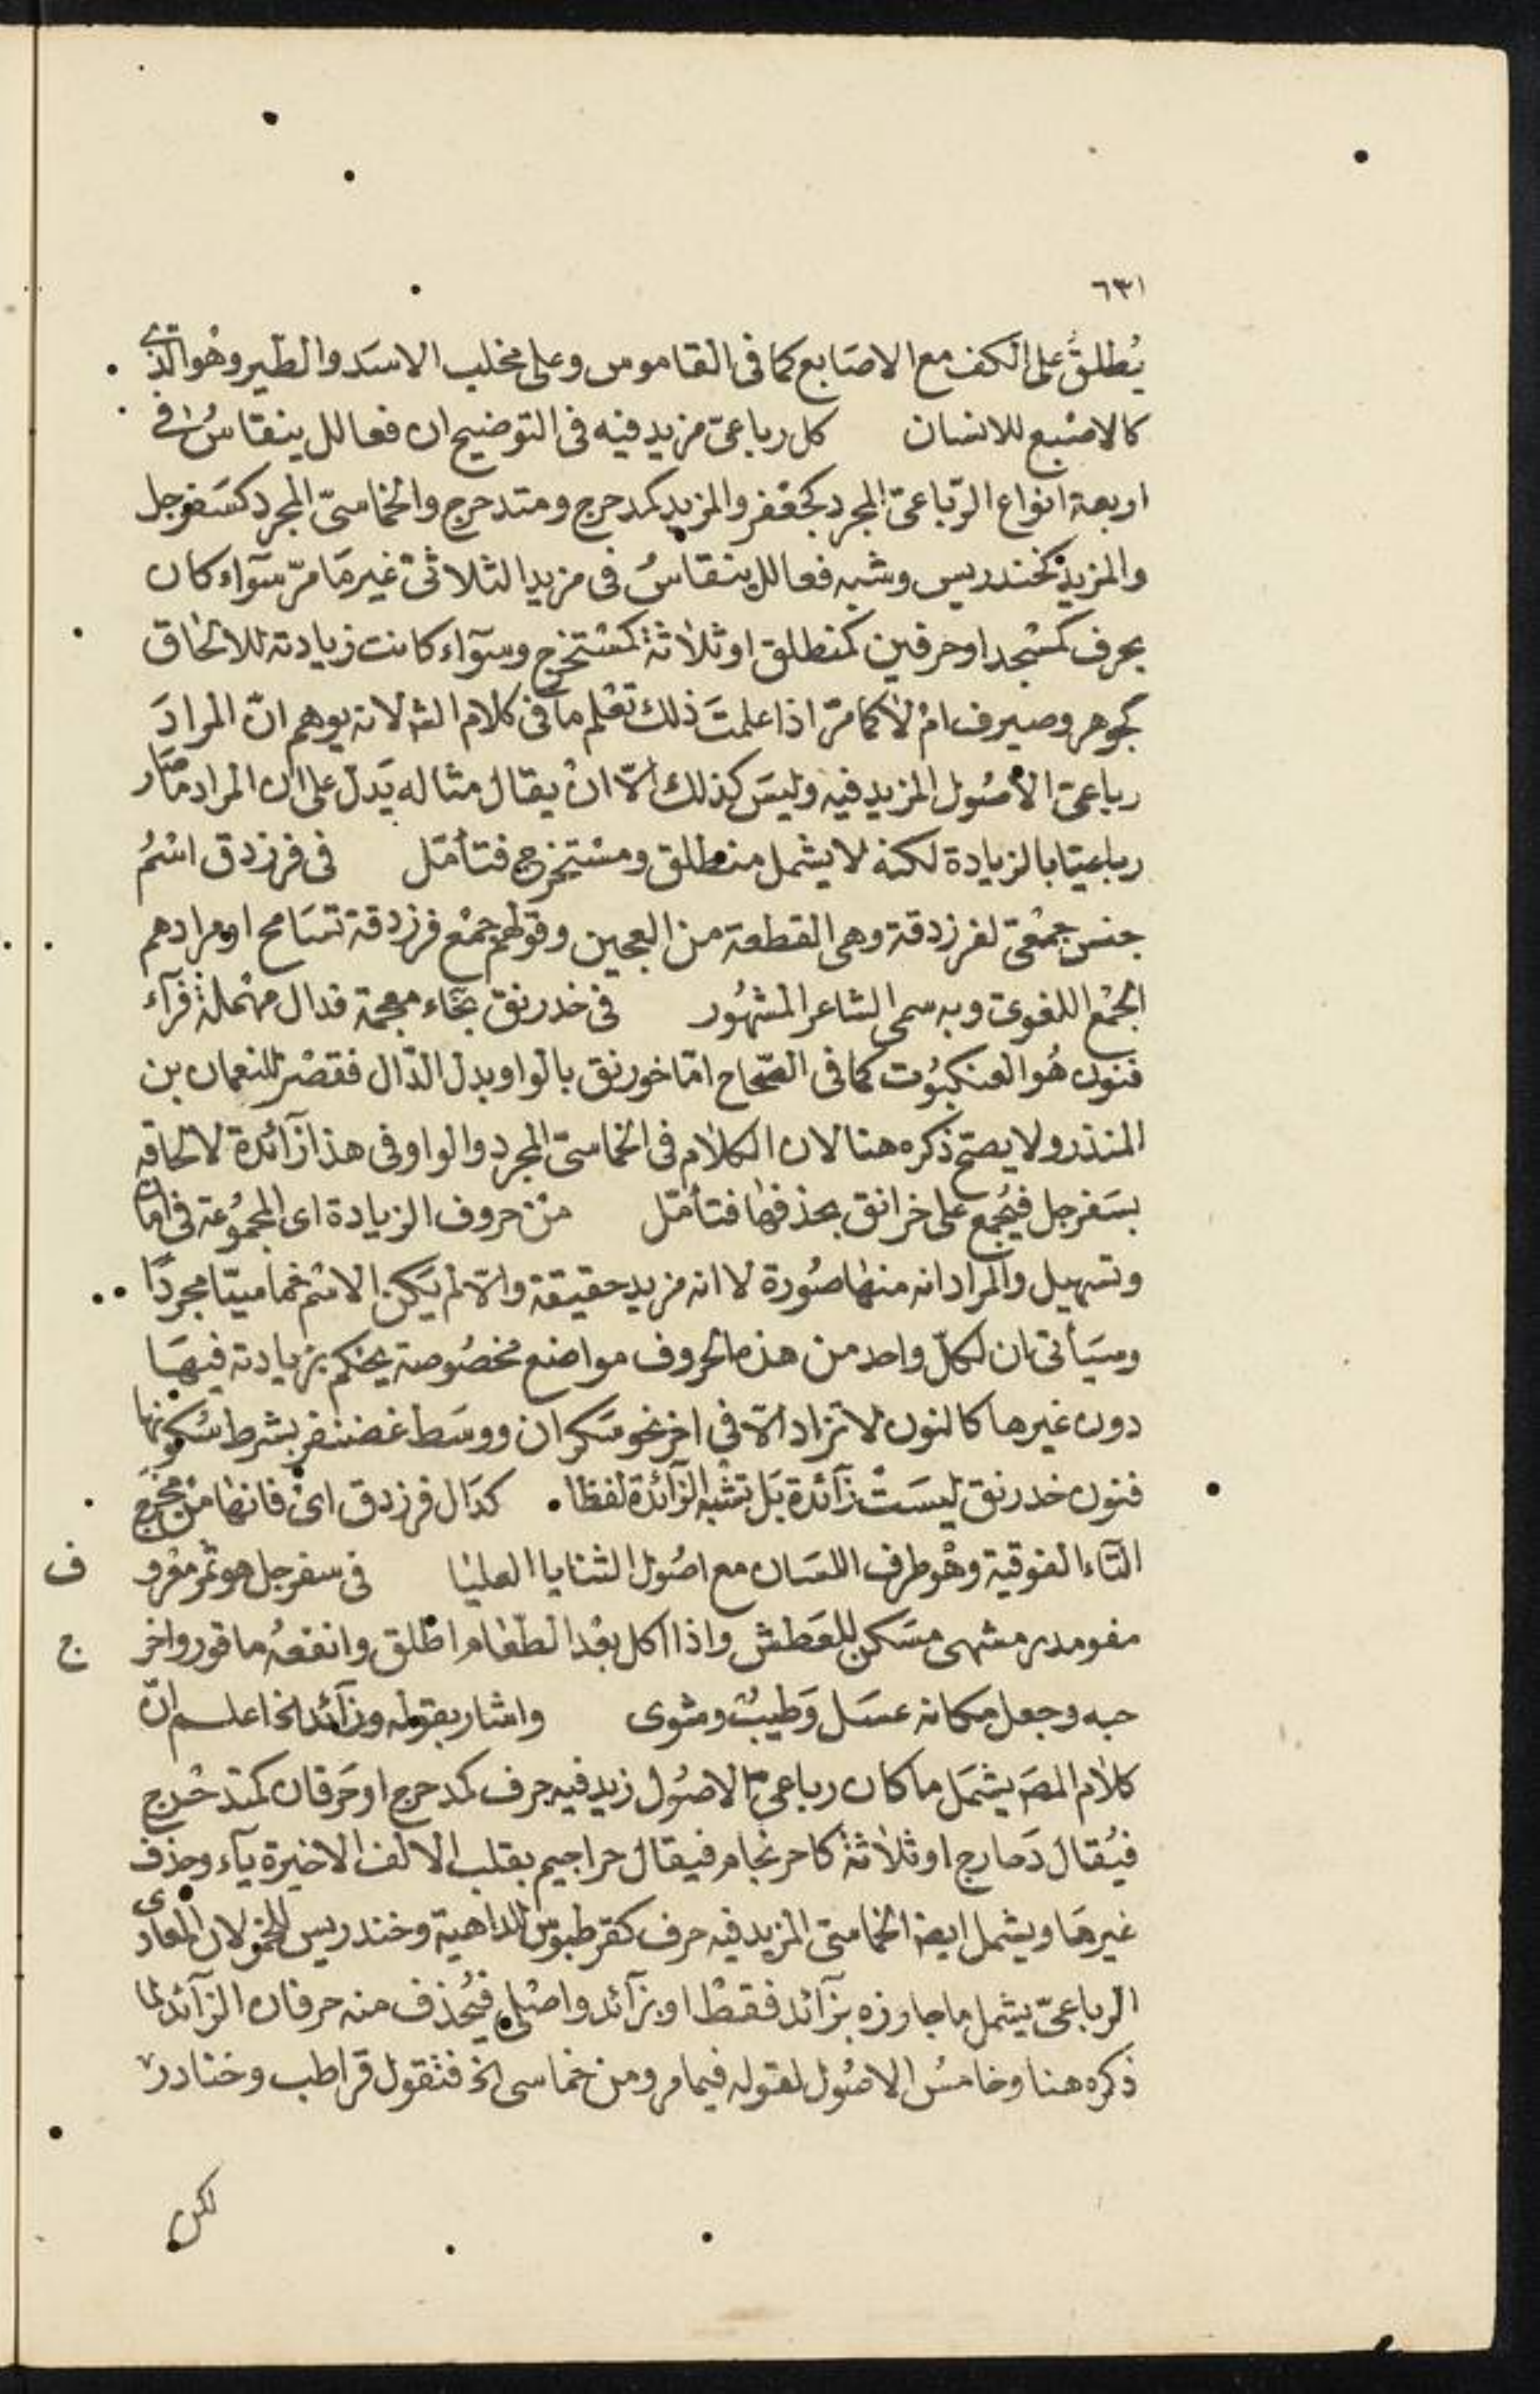 ٦٣١
يُطلقُ على الكف مع الاصابع كما فى القاموس وعلى مخلب الاسَد والطير وهو الذى
كالاصْبع للانسان كل رباعىّ مزيد فيه فى التوضيح ان فعالل ينقاسُ فى
اربعة انواع الرّباعىّ المجرد كجعْفر والمزيد كمدحرج ومتدحرج والخماسىّ المجرد كسَفرجل
والمزيد كخندريس وشبه فعالل ينقاسُ فى مزيد الثلاثىّ غير مَا مرّ سوآء كان
بحرف كمسْجد او حرفين كمنطلق او ثلاثة كمسْتخرج وسوآء كانت زيادته للالحاق
كجوهر وصيرف امْ لا كما مرّ اذا علمتَ ذلك تعْلم ما فى كلام الشه لانه يوهم انّ المرادَ
رباعىّ الأصُول المزيد فيه وليسَ كذلك الاّ انْ يقال مثاله يَدل على ان المراد ما صَار
رباعيّا بالزيادة لكنه لا يشمل منطلق ومسْتخرج فتأمّل فى فرزدق اسْمُ
جنس جمْعىّ لفرزدقة وهى القطعة من العجين وقولهم جمْع فرزدقة تسَامح او مرادهم
الجمْع اللغوىّ وبه سمى الشاعر المشهُور فى خدرنق بخَاء معجمة فدال مهْملة فرآء
فنون هُو العنكبُوت كما فى الصّحاح امّا خورنق بالواو بدل الدّال فقصْر للنعمان بن
المنذر ولا يصحّ ذكره هنا لان الكلام فى الخماسىّ المجرد والواو فى هذا زآئدة لالحاقه
بسَفرجل فيُجمع على خرانق بحذفها فتأمّل منْ حروف الزيادة اى المجمُوعة فى امان
وتسْهيل والمراد انه منها صُورة لا انه مزيد حقيقة والاّ لم يَكن الاسْم خماسيّا مجردًا
وسيَأتى ان لكلّ واحد من هذه الحروف مواضع مخصُوصة يحْكم بزيادته فيهَا
دون غيرها كالنون لا تزاد الاّ فى اخر نحو سَكران ووسَط غضنفر بشرط سُكونها
فنون خدرنق ليسَتْ زآئدة بَل تشْبه الزآئدة لفظا كدَال فرزدق اىْ فانها منْ مخرج
التآء الفوقية وهْو طرف اللسَان مع اصُول الثنايا العليَا فى سفرجل هو ثمر مقْو
مقو مدر مشهى مسَكن للعَطش واذا اكل بعْد الطعَام اطْلق وانفعُه ما قور واخر ج
حبه وجعل مكانه عسَل وَطيبْ ومشوى واشار بقوله وزآئد الخ اعلـم انّ
كلام المصَ يشمَل ما كان رباعىّ الاصُول زيد فيه حرف كمدحرج او حَرفان كمتدحْرج
فيُقال دَحارج او ثلاثة كاحرنجام فيقال حراجيم بقلب الالف الاخيرة يآء وحذف
غيرهَا ويشمل ايضا الخماسىّ المزيد فيه حرف كقرطبوس للداهية وخندريس للخمر لان العَادى
الرباعىّ يشمل ما جاوزه بزآئد فقطْ او بزآئد واصْلى فيُحْذف منه حرفان الزآئد لما
ذكره هنا وخامسُ الاصُول لقوله فيما مر ومن خماسى الخ فتقول قراطب وخنادر
لكن
ف
ج